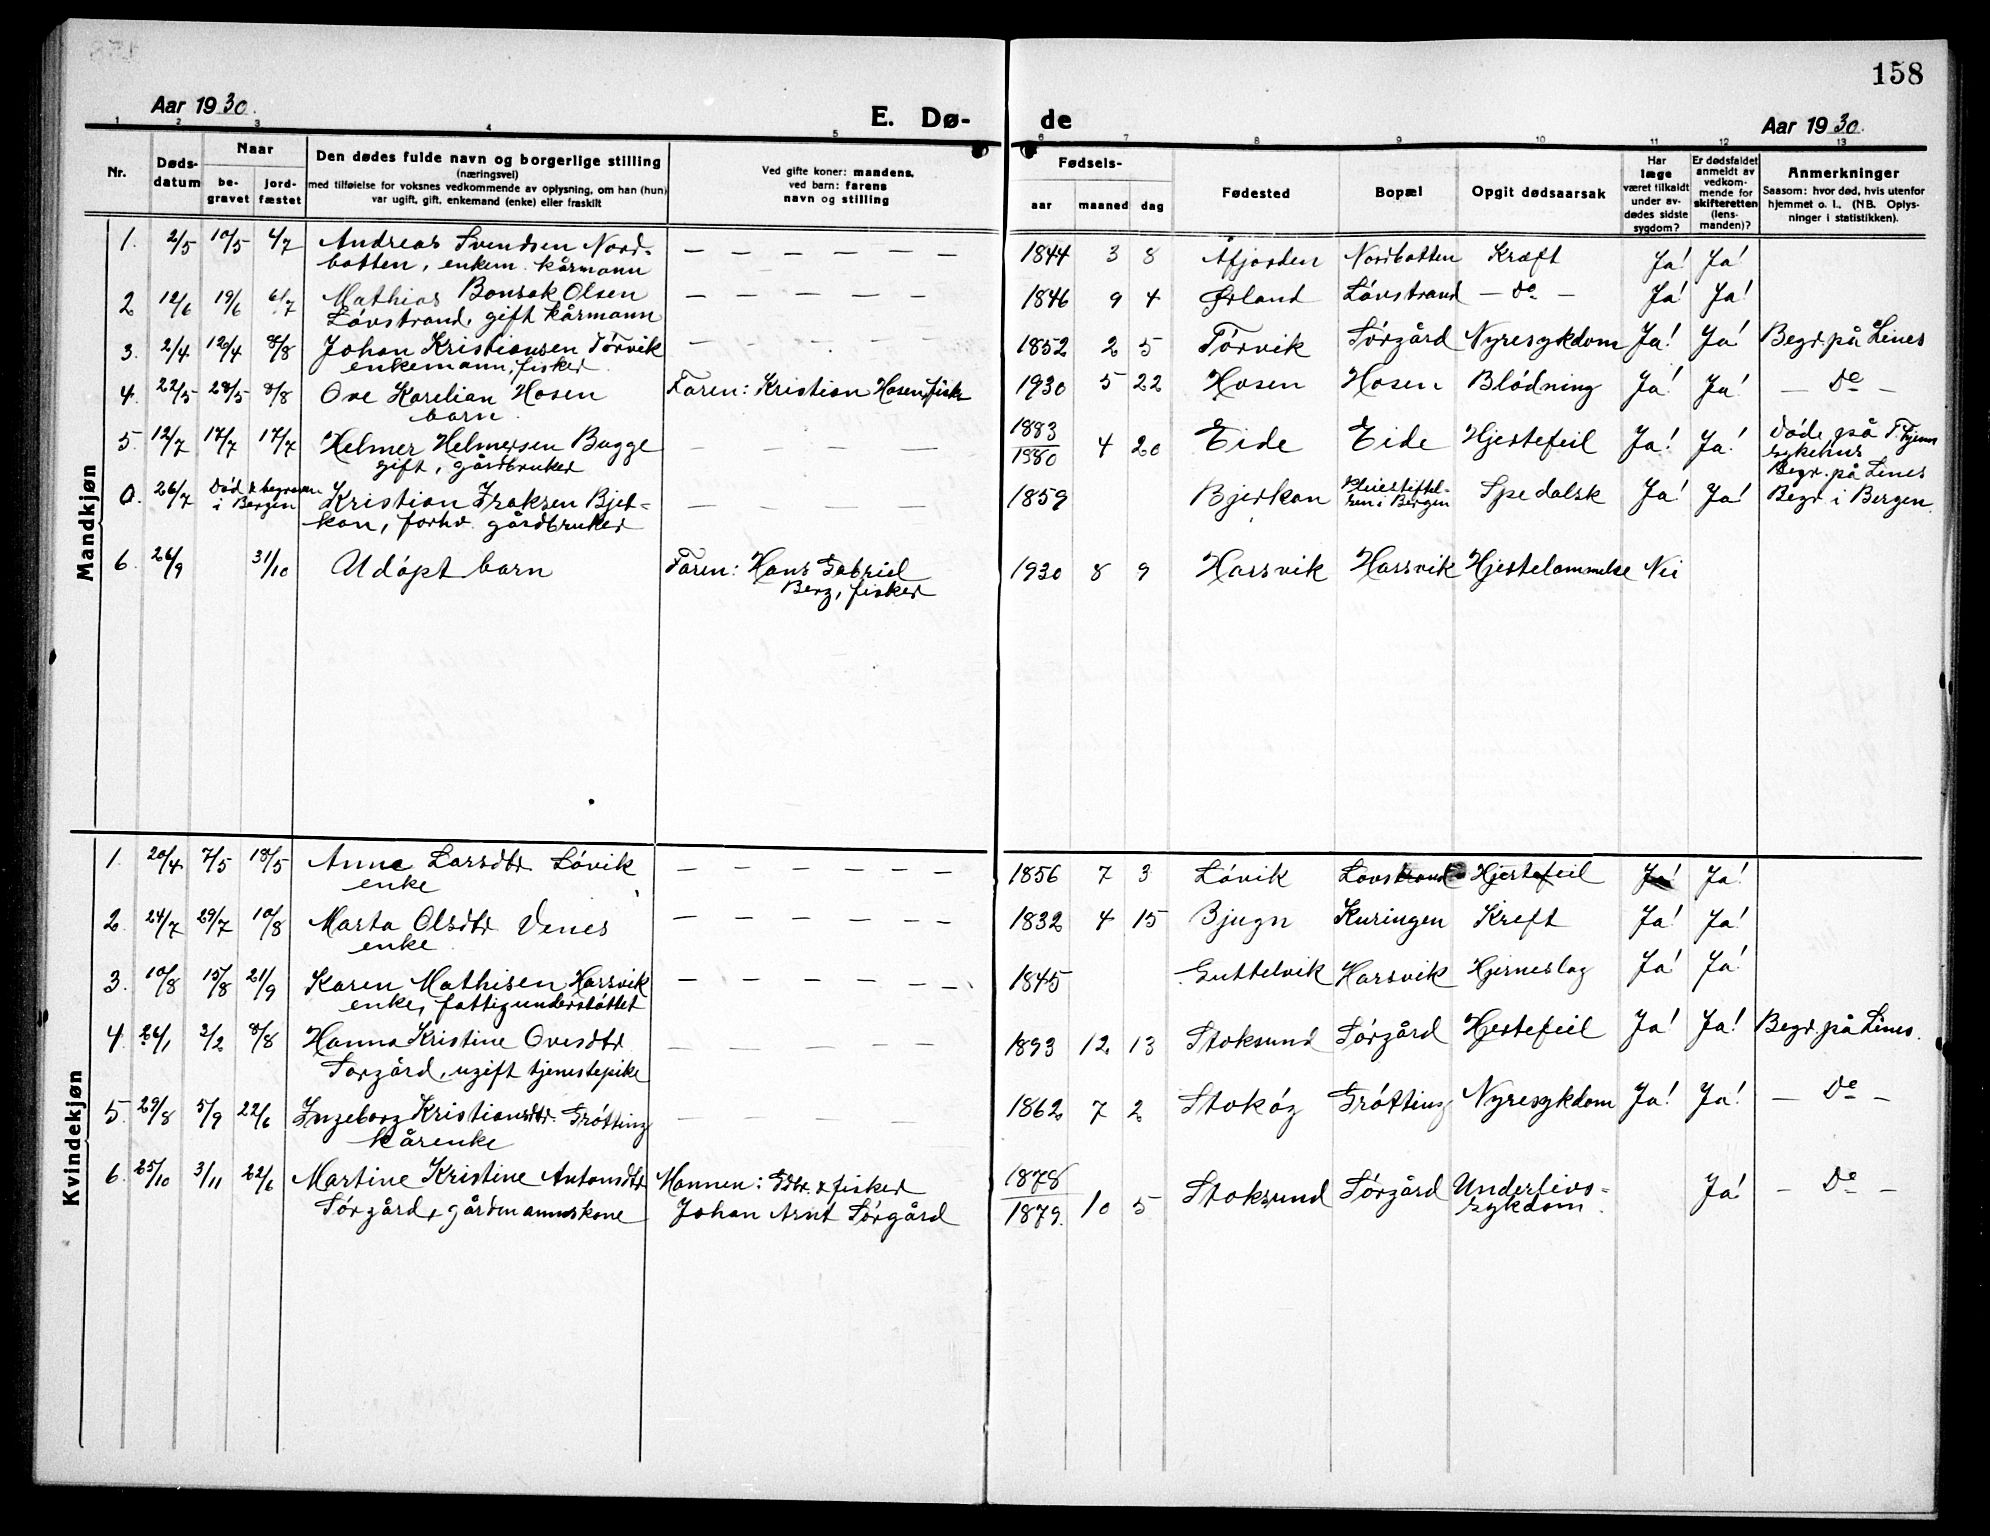 158
Aar 1930. E. Dø- de Aar 1930.
1 2 3 4 5 6 7 8 9 10 11 12 13
Nr. Døds-datum Naar be-gravet jord-fæstet Den dødes fulde navn og borgerlige stilling (næringsvei) med tilføielse for voksnes vedkommende av oplysning, om han (hun) var ugift, gift, enkemand (enke) eller fraskilt Ved gifte koner: mandens, ved barn: farens navn og stilling Fødsels- aar maaned dag Fødested Bopæl Opgit dødsaarsak Har læge været tilkaldt under av-dødes sidste sygdom? Er dødsfaldet anmeldt av vedkom-mende for skifteretten (lens-manden)? Anmerkninger Saasom: hvor død, hvis utenfor hjemmet o. l., (NB. Oplys-ninger i statistikken).
Mandkjøn
1. 2/5 10/5 6/7 Andreas Svendsen Nord- — — — — — — 1844 3 8 Åfjorden Nordbotten Kræft Ja! Ja!
botten, enkem. kårmann
2 12/6 19/6 6/7 Mathias Bonsak Olsen — — — — — 1846 9 4 Ørland Lövstrand — do — Ja! Ja!
Lövstrand, gift kårmann
3. 2/4 12/4 8/8 Johan Kristiansen Törvik — — — — — — 1852 2 5 Törvik Sörgård Nyresykdom Ja! Ja! Begr. på Lines
enkemann, fisker
4. 22/5 28/5 8/8 Ove Karelian Hosen Faren: Kristian Hosen, fisker 1930 5 22 Hosen Hosen Blödning Ja! Ja! — Do —
barn
5. 12/7 17/7 17/7 Helmer Helmersen Bugge — — — — 1883 4 20 Eide Eide Hjertefeil Ja! Ja! Döde på T.hjems
gift, gårdbruker 1930 sykehus
Begr. på Lines
0. 26/7 Död & begraven i Bergen Kristian Isaksen Bjer- — — — — — 1859 Bjerkan Pleiestiftel-sen i Bergen Spedalsk Ja! Ja! Begr. i Bergen.
kan, forhv. gårdbruker
6. 26/9 31/10 Udöpt barn Faren: Hans Gabriel 1930 8 9 Harsvik Harsvik Hjertelammelse Nei
Berg, fisker
Kvindekjøn
1. 20/4 7/5 18/5 Anna Larsdtr Lövik — — — — — — 1856 7 3 Lövik Lovstrand Hjertefeil Ja! Ja!
enke
2. 24/7 29/7 10/8 Marta Olsdtr Venes — — — — — — 1832 4 15 Bjugn Kuringen Kreft Ja! Ja!
enke
3. 10/8 15/8 21/9 Karen Mathisen Harsvik — — — — — — 1845 Guttelvik Harsvik Hjerneslag Ja! Ja!
enke, fattigunderstöttet
4. 26/1 3/2 8/8 Hanna Kristine Ovesdtr — — — — — 1893 12 13 Stoksund Sörgård Hjertefeil Ja! Ja! Begr. på Lines.
Sörgård, ugift tjenestepike
5. 29/8 5/9 22/6 Ingeborg Kristiansdtr. Grötting — — — 1862 7 2 Stoköy Gröttingr Nyresykdom Ja! Ja! — Do —
kårenke
6. 25/10 3/11 22/6 Martine Kristine Antonsdtr Mannen: Gdbr. & fisker 1878 10 5 Stoksund Sörgård Underlivs- Ja! — Do —
Sörgård, gårdmannskone Johan Arnt Sörgård 1879. sykdom.